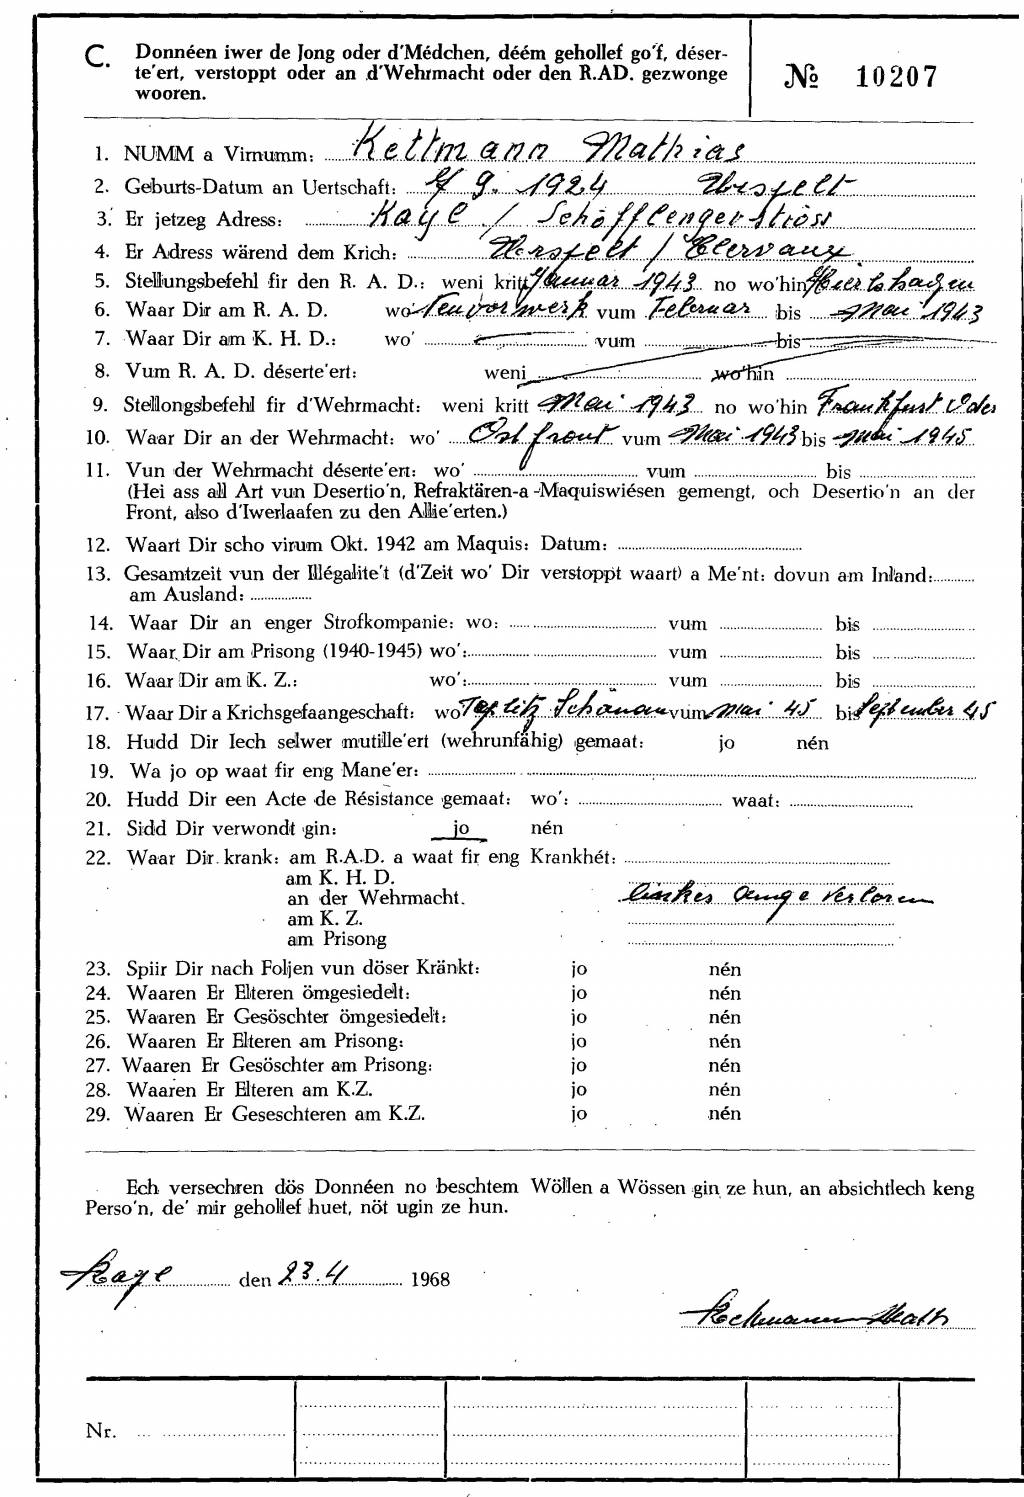 C. Donnéen iwer de Jong oder d'Médchen, déém gehollef go'f, déser-
te'ert, verstoppt oder an d'Wehrmacht oder den R.AD. gezwonge
wooren.
№ 10207
1. NUMM a Virnumm: Kettmann Mathias
2. Geburts-Datum an Uertschaft: 9. 1924 Urspelt
3. Er jetzeg Adress: Kayl / Schöfflengerstross
4. Er Adress wärend dem Krich: Urspelt / Clervaux
5. Stellungsbefehl fir den R. A. D.: weni kritt Januar 1943 no wo'hin
6. Waar Dir am R. A. D. wo' Neuvorwerk vum Februar bis Mai 1943
7. Waar Dir am K. H. D.: wo' vum bis
8. Vum R. A. D. déserte'ert: weni wo'hin
9. Stellongsbefehl fir d'Wehrmacht: weni kritt Mai 1943 no wo'hin Frankfurt Oder
10. Waar Dir an der Wehrmacht: wo' Ostfront vum Mai 1943 bis Mai 1945
11. Vun der Wehrmacht déserte'ert: wo' vum bis
(Hei ass all Art vun Desertio'n, Refraktären-a-Maquiswiésen gemengt, och Desertio'n an der
Front, also d'Iwerlaafen zu den Allie'erten.)
12. Waart Dir scho virum Okt. 1942 am Maquis: Datum:
13. Gesamtzeit vun der Illégalite't (d'Zeit wo' Dir verstoppt waart) a Me'nt: dovun am Inland:
am Ausland:
14. Waar Dir an enger Strofkompanie: wo: vum bis
15. Waar Dir am Prisong (1940-1945) wo': vum bis
16. Waar Dir am K. Z.: wo': vum bis
17. Waar Dir a Krichsgefaangeschaft: wo Teplitz Schönau vum Mai 45 bis September 45
18. Hudd Dir Iech selwer mutille'ert (wehrunfähig) gemaat: jo nén
19. Wa jo op waat fir eng Mane'er:
20. Hudd Dir een Acte de Résistance gemaat: wo': waat:
21. Sidd Dir verwondt gin: jo nén
22. Waar Dir krank: am R.A.D. a waat fir eng Krankhét:
am K. H. D.
an der Wehrmacht. linkes Auge verloren
am K. Z.
am Prisong
23. Spiir Dir nach Foljen vun döser Kränkt: jo nén
24. Waaren Er Elteren ömgesiedelt: jo nén
25. Waaren Er Gesöschter ömgesiedelt: jo nén
26. Waaren Er Elteren am Prisong: jo nén
27. Waaren Er Gesöschter am Prisong: jo nén
28. Waaren Er Elteren am K.Z. jo nén
29. Waaren Er Geseschteren am K.Z. jo nén
Ech versechren dös Donnéen no beschtem Wöllen a Wössen gin ze hun, an absichtlech keng
Perso'n, de' mir gehollef huet, nöt ugin ze hun.
Kayl den 23.4 1968
Nr.